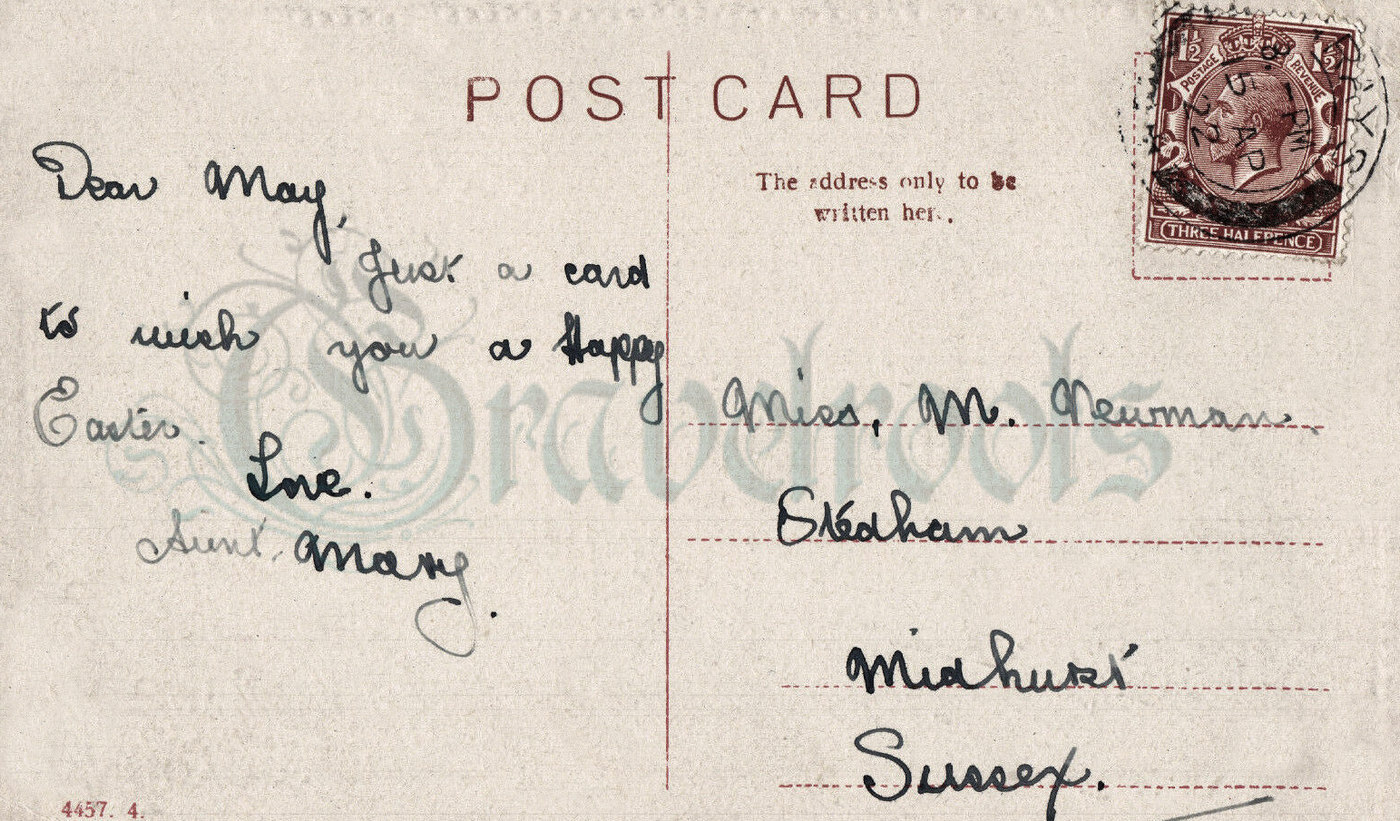 POST CARD
The address only to be
written here.
Dear May,
Just a card
to wish you a Happy
Easter.
Love.
Aunt. Mary.
Miss, M. Newman.
Stedham
Midhurst
Sussex.
1½ 1½
POSTAGE REVENUE
THREE HALFPENCE
7-PM
5 AP
22
Gravelroots
4457. 4.